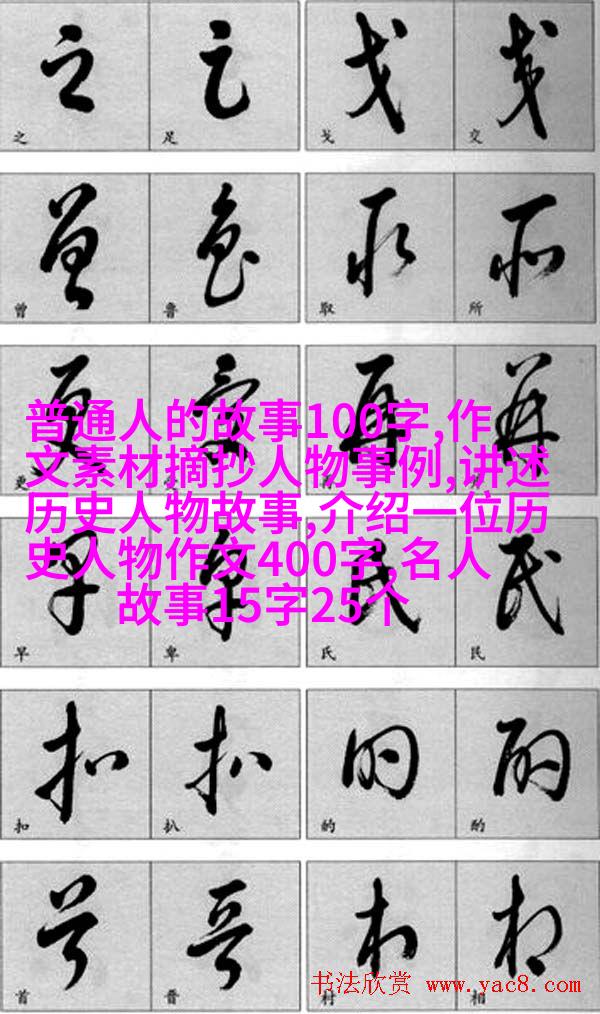 之 足 戈 交
曾 鲁 取 所
更
普通人的故事100字,作
文素材摘抄人物事例,讲述
历史人物故事,介绍一位历
史人物作文400字,名人
故事15字25个
早 卑 氏 民
扣 扒 的 酌
首 晋 村 相
书法欣赏 www.yac8.com